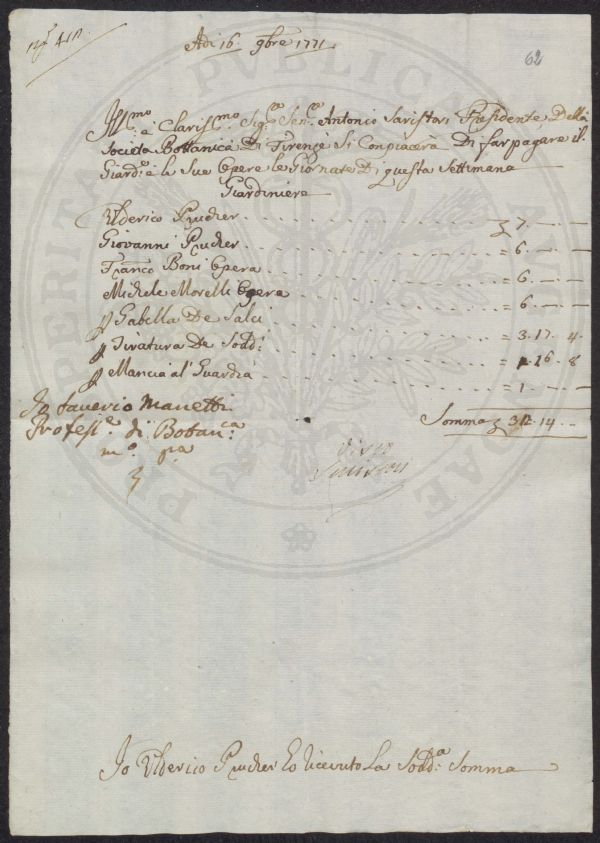 Adì 16 9bre 1771
62
Ill.mo e Clariss.mo Sig.re Sen.re Antonio Saristori Presidente Della
Societa Bottanica Di Firenze Si Conpiacerà Di far pagare il
Giard.e e le Sue Opere le Giornate Di questa Settimana
Giardiniere
Ulderico Prucker 7
Giovanni Prucker = 6
Franco Boni Opera = 6
Michele Morelli Opera = 6
p Gabella De Salci = 3. 17. 4
p Tiratura De Sodd.i 1. 16. 8
p Mancia al' Guardia = 1
Somma 32. 14
Io Saverio Manetti
Profess.e di Botan.ca
m.o p.a
visto
Io Ulderico Prucker ho ricevuto La Sodd.a Somma
PROSPERITATI PVBLICAE AVGENDAE